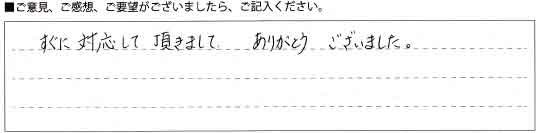 ■ご意見、ご感想、ご要望がございましたら、ご記入ください。
すぐに対応して頂きまして ありがとうございました。